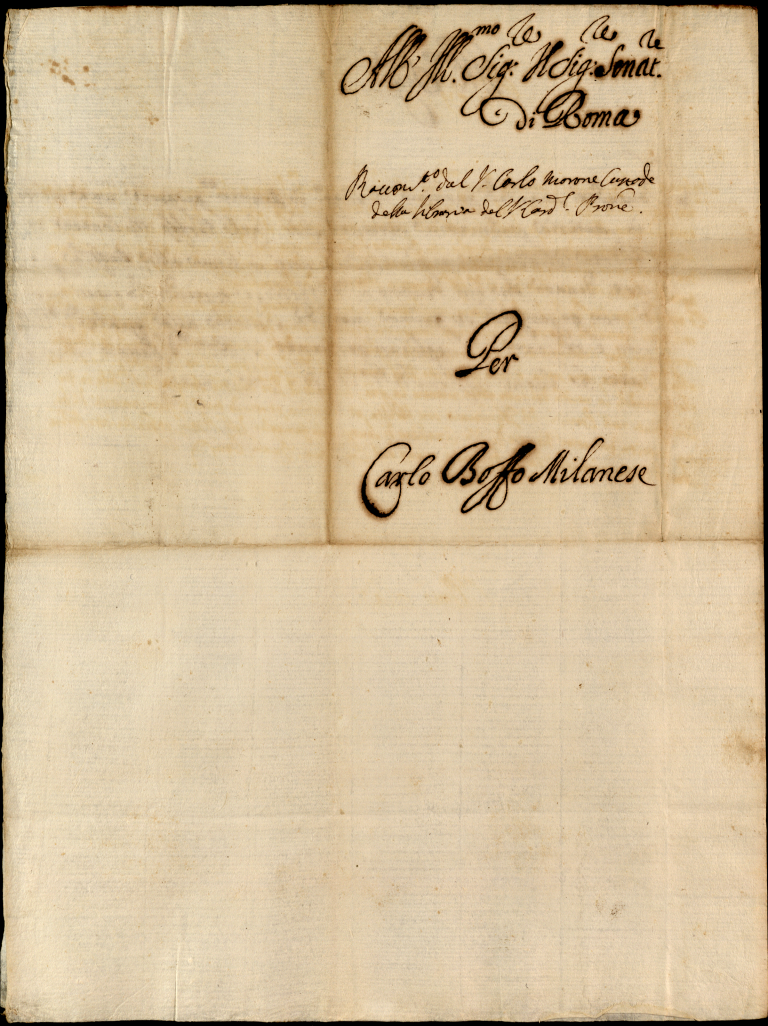 All' Ill.mo Sig.re Il Sig.re Senat.re
di Roma
Raccom.to dal S.r Carlo Morone Custode
della libraria del S. Card.l
Per
Carlo Bosso Milanese